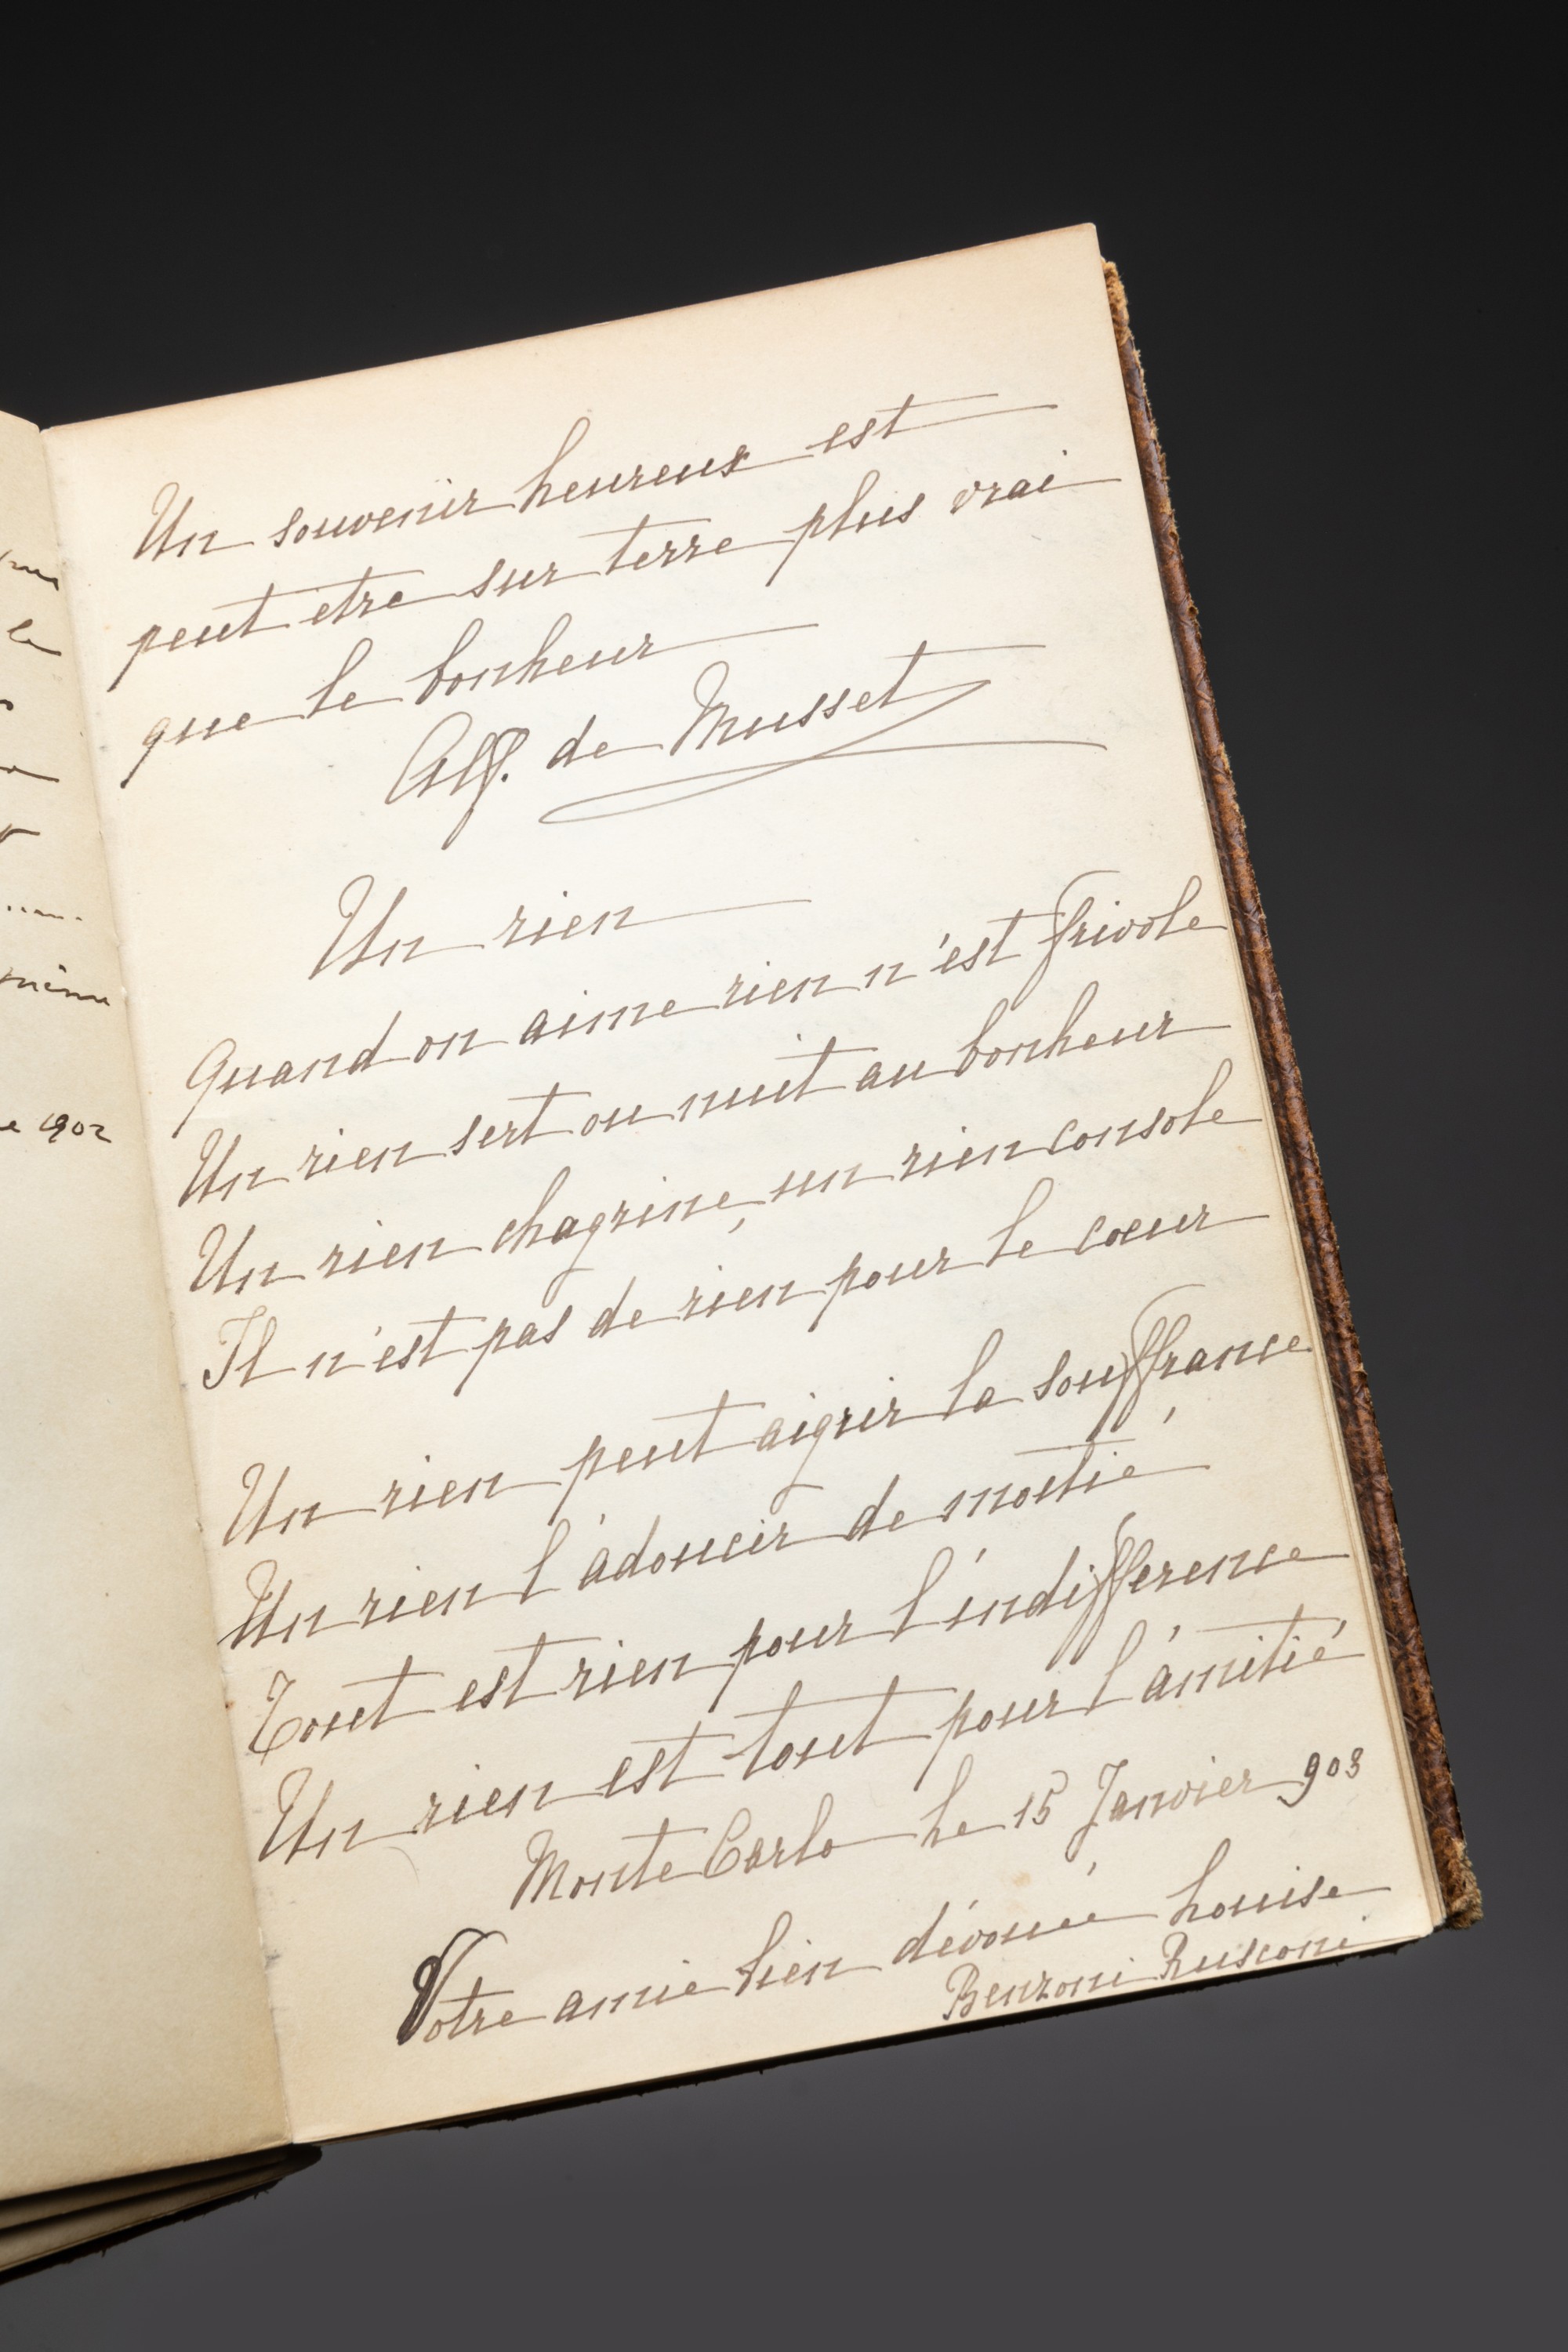 le
902
Un souvenir heureux est
peut etre sur terre plus vrai
que le bonheur
Alf. de Musset
Un rien
Quand on aime rien n'est frivole
Un rien sert ou nuit au bonheur
Un rien chagrine, un rien console
Il n'est pas de rien pour le coeur
Un rien peut aigrir la souffrance
Un rien l'adoucir de moitié
Tout est rien pour l'indifference
Un rien est tout pour l'amitié
Monte Carlo le 15 Janvier 903
Votre amie bien dévouée Louise
Benzoni Rusconi